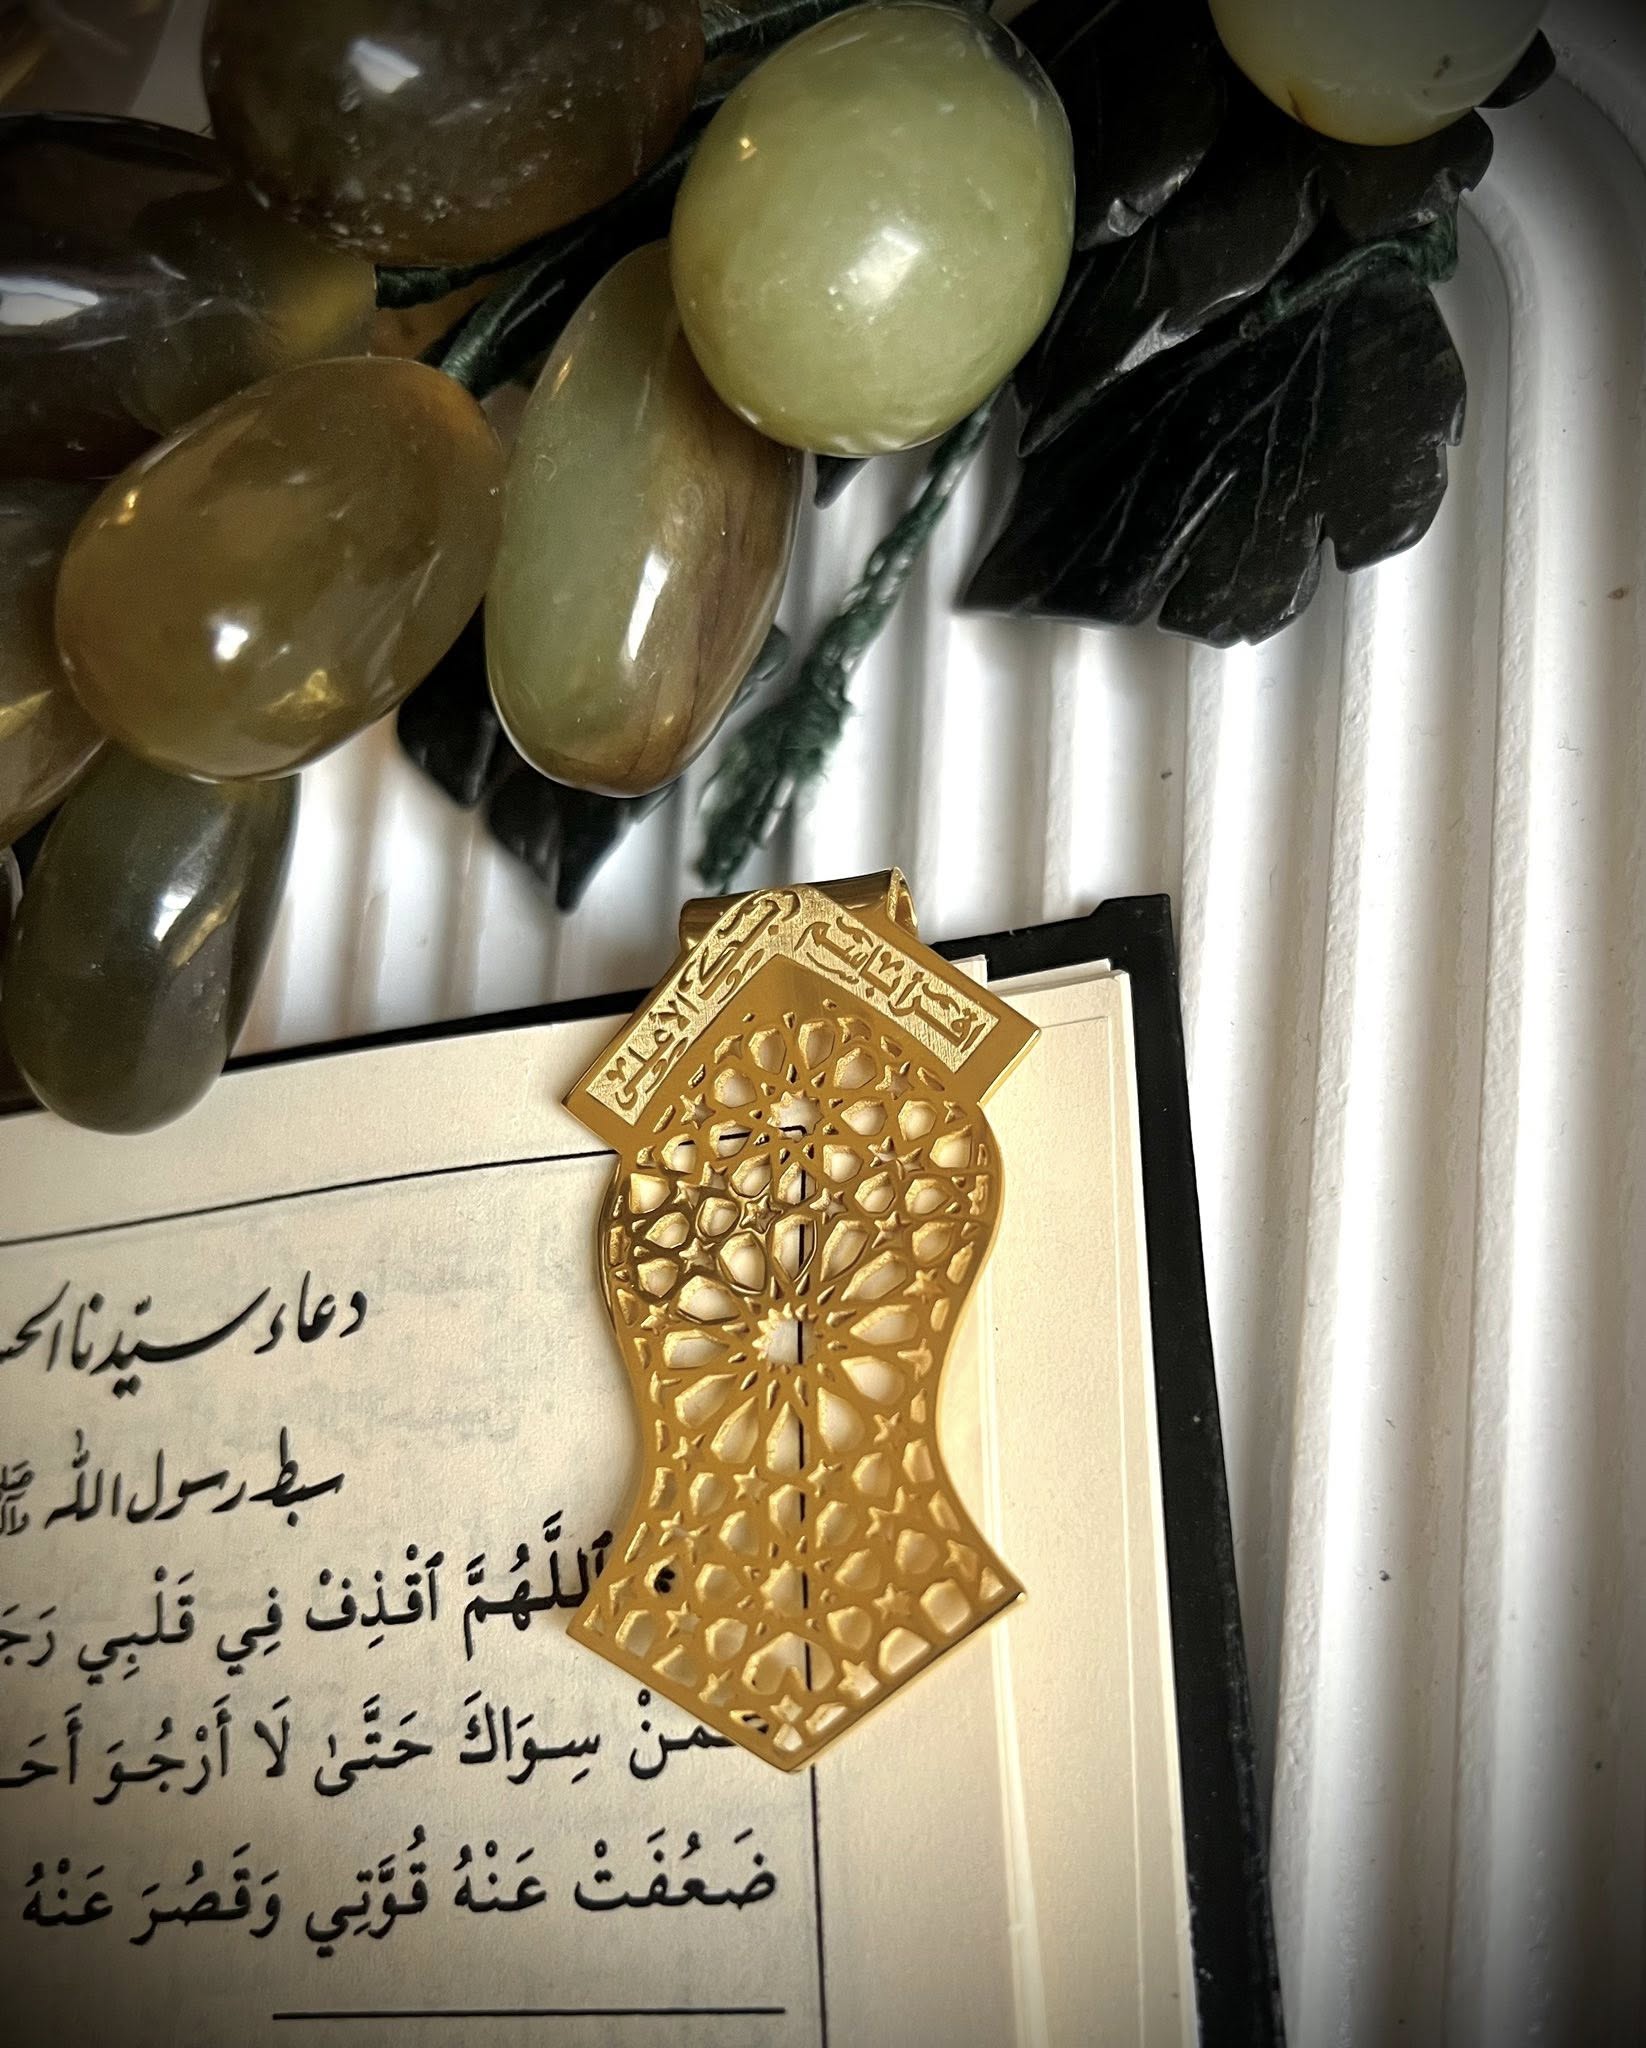 اقرأ باسم
ربك الأعلى
دعاء سيّدنا
سبط رسول اللّٰه
ٱللَّهُمَّ ٱقْذِفْ فِي قَلْبِي
سِوَاكَ حَتَّىٰ لَا أَرْجُوَ
ضَعُفَتْ عَنْهُ قُوَّتِي وَقَصُرَ عَنْهُ